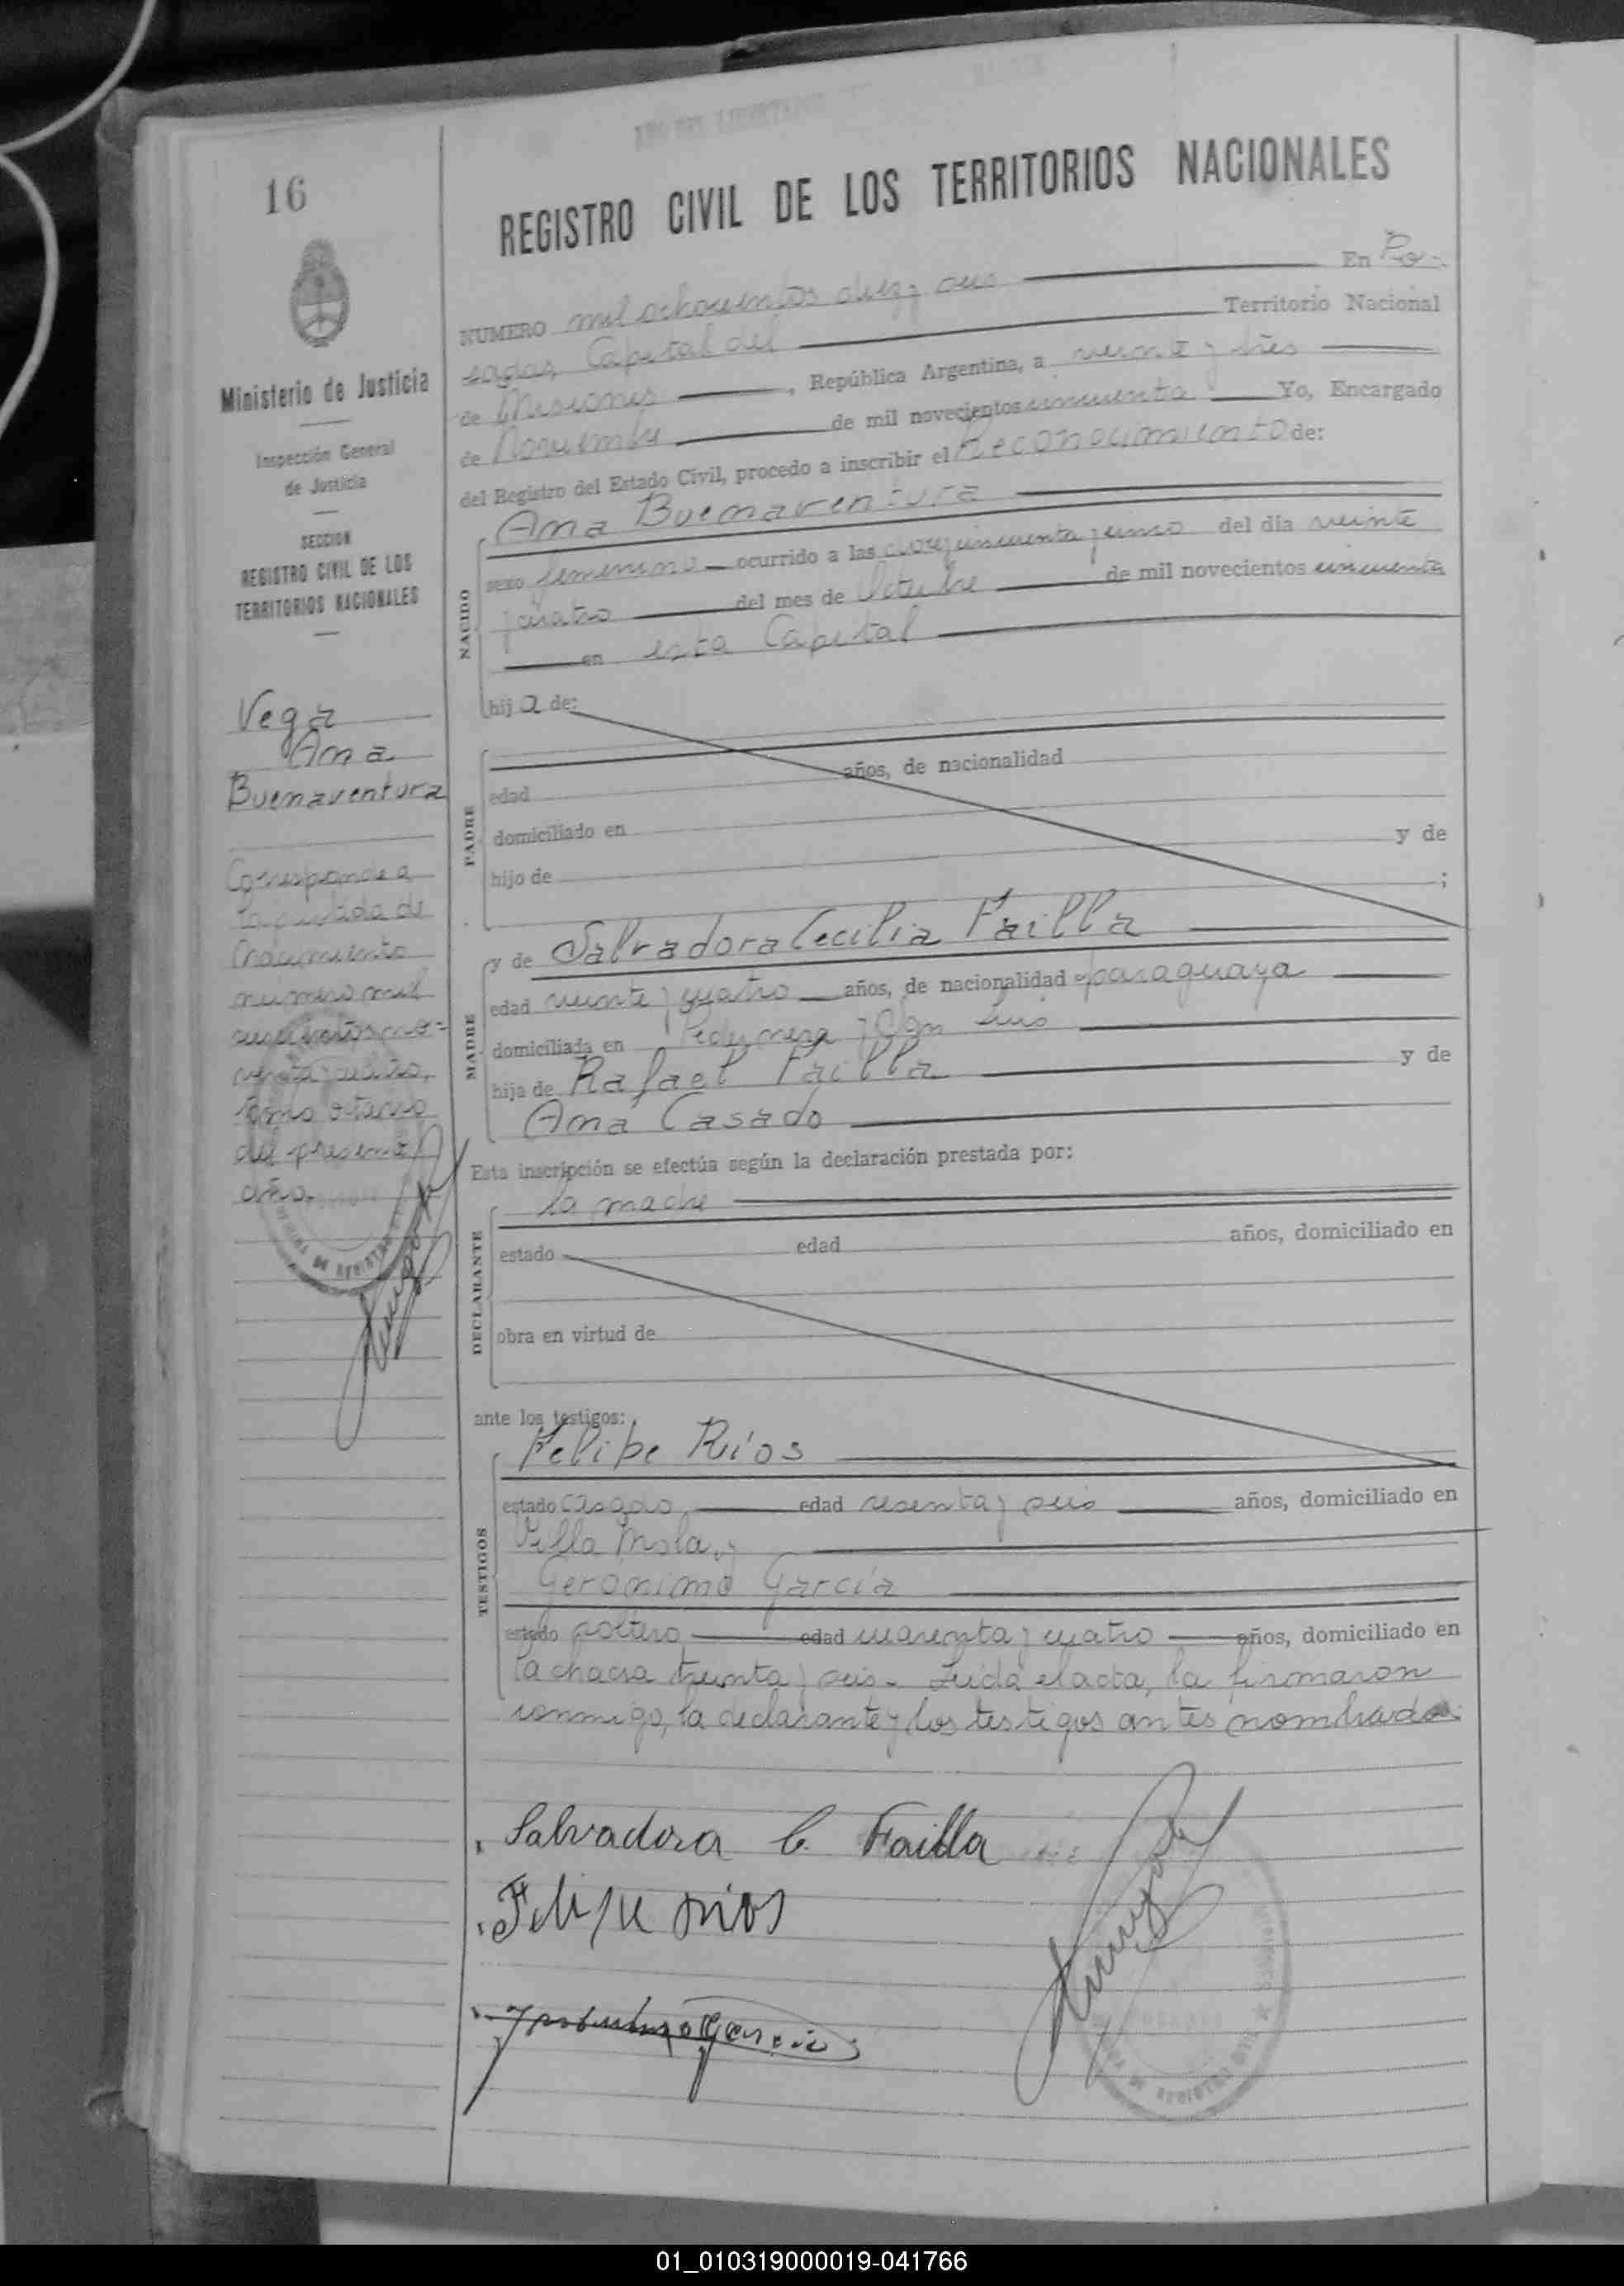 16
Ministerio de Justicia
Inspección General
de Justicia
SECCION
REGISTRO CIVIL DE LOS
TERRITORIOS NACIONALES
Vega
Ana
Buenaventura
Corresponde a
la partida de
nacimiento
número mil
novecientos no=
venta y cuatro,
tomo octavo
del presente
año.
REGISTRO CIVIL DE LOS TERRITORIOS NACIONALES
NUMERO mil ochocientos diez y seis En Po-
sadas, Capital del Territorio Nacional
de Misiones, República Argentina, a veinte y tres
de Noviembre de mil novecientos cincuenta Yo, Encargado
del Registro del Estado Civil, procedo a inscribir el Reconocimiento de:
Ana Buenaventura
NACIDO
sexo femenino ocurrido a las doce y cincuenta y cinco del día veinte
y cuatro del mes de Octubre de mil novecientos cincuenta
en esta Capital
hija de:
PADRE
edad años, de nacionalidad
domiciliado en
hijo de y de
;
MADRE
y de Salvadora Cecilia Failla
edad veinte y cuatro años, de nacionalidad paraguaya
domiciliada en Pedernera y San Luis
hija de Rafael Failla y de
Ana Casado
Esta inscripción se efectúa según la declaración prestada por:
la madre
DECLARANTE
estado edad años, domiciliado en
obra en virtud de
ante los testigos:
TESTIGOS
Felipe Ríos
estado casado, edad sesenta y seis años, domiciliado en
Villa Mola, y
Gerónimo García
estado soltero edad cuarenta y cuatro años, domiciliado en
la chacra treinta y seis.- Leída el acta, la firmaron
conmigo, la declarante y los testigos antes nombrados.
Salvadora C. Failla
Felipe rios
Garcia
01_010319000019-041766